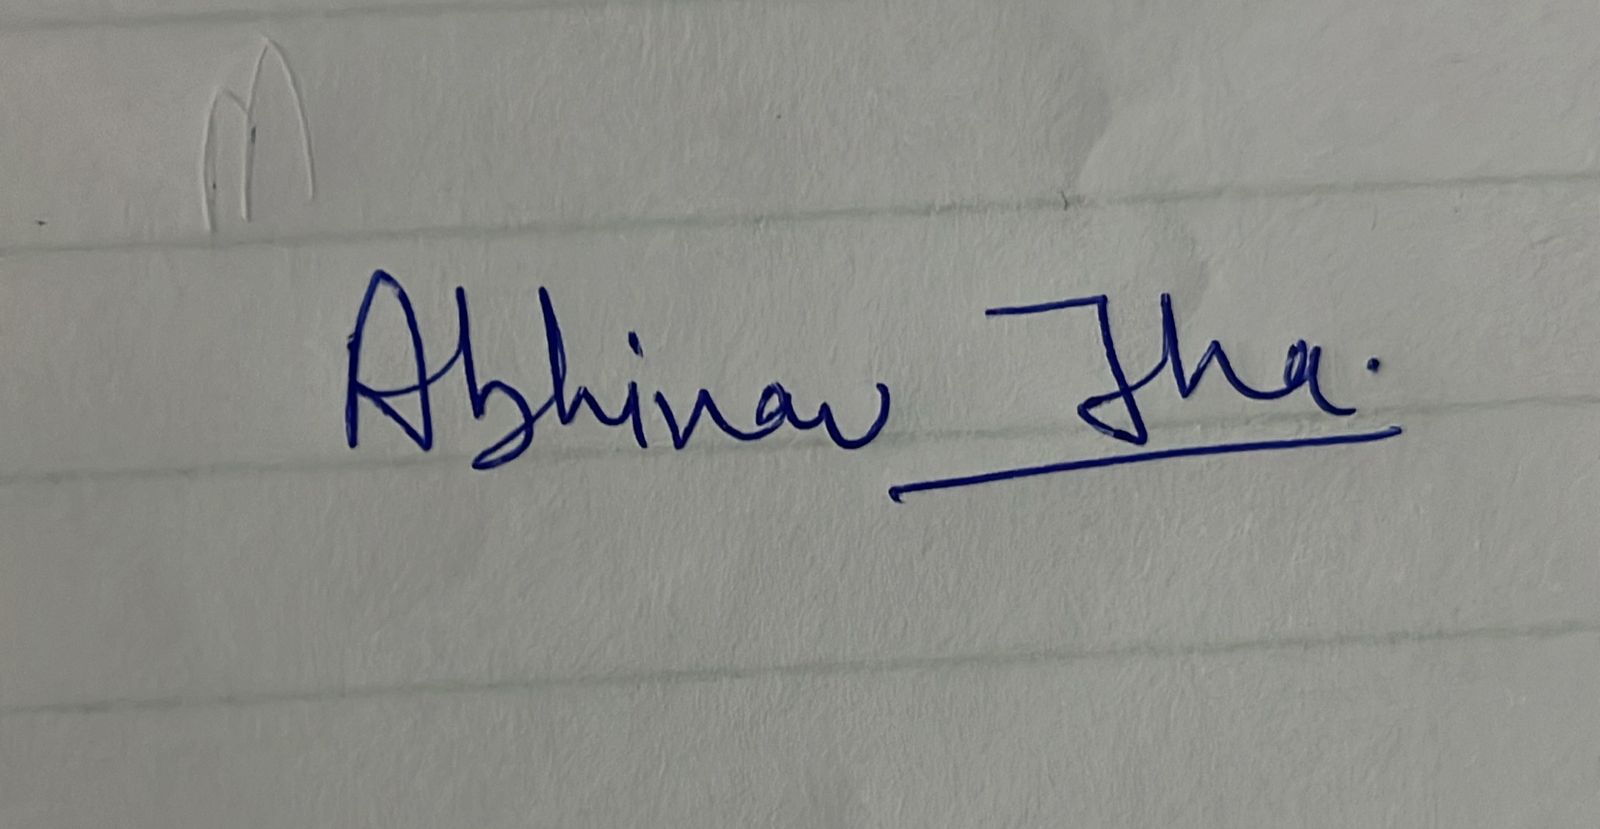 Abhinav Jha.